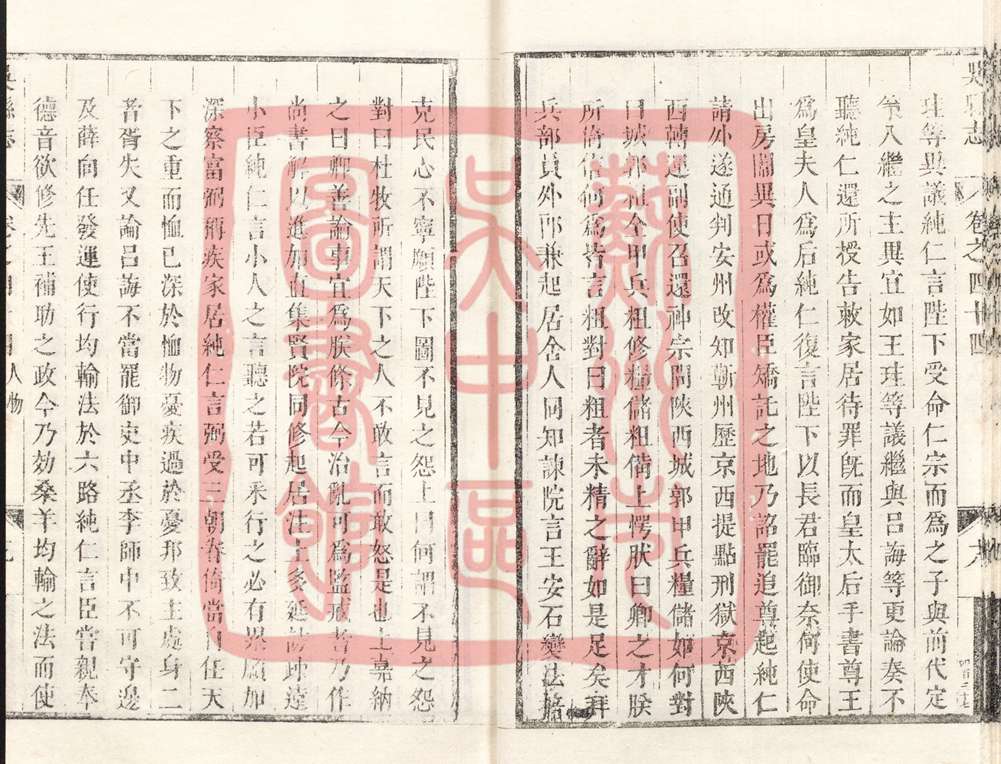 吳縣志
卷之四十四
珪等與議純仁言陛下受命仁宗而爲之子與前代定
策入繼之主異宜如王珪等議繼與呂誨等更論奏不
聽純仁還所授告敕家居待罪旣而皇太后手書尊王
爲皇夫人爲后純仁復言陛下以長君臨御奈何使命
出房闥異日或爲權臣矯託之地乃詔罷追尊起純仁
請外遂通判安州改知蘄州歷京西提點刑獄京西陝
西轉運副使召還神宗問陝西城郭甲兵糧儲如何對
曰城郭粗全甲兵粗修糧儲粗備上愕肰曰卿之才朕
所倚信何爲皆言粗對曰粗者未精之辭如是足矣拜
兵部員外郎兼起居舍人同知諫院言王安石變法掊
克民心不寧願陛下圖不見之怨上曰何謂不見之怨
對曰杜牧所謂天下之人不敢言而敢怒是也上嘉納
之曰卿善論事宜爲朕條古今治亂可爲監戒者乃作
尚書解以進加直集賢院同修起居注上多延訪疎遠
小臣純仁言小人之言聽之若可采行之必有累願加
深察富弼稱疾家居純仁言弼受三朝眷倚當自任天
下之重而恤已深於恤物憂疾過於憂邦致主處身二
者胥失又論呂誨不當罷御史中丞李師中不可守邊
及薛向任發運使行均輸法於六路純仁言臣嘗親奉
德音欲修先王補助之政今乃効桑羊均輸之法而使
吳縣志
人物
蘇州市吳中區圖書館